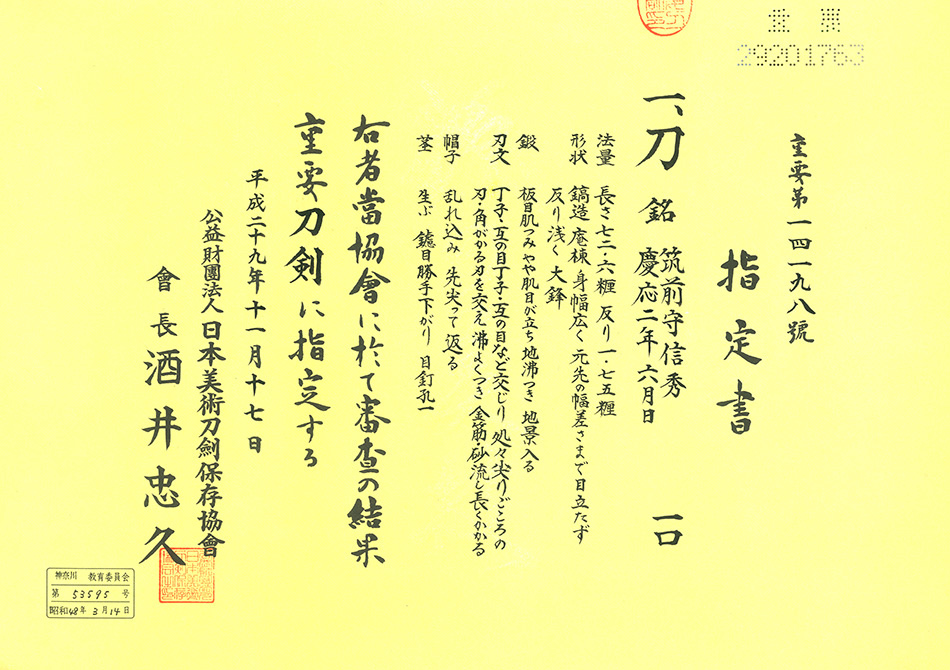 29201763
重要第一四一九八號
指定書
一、刀 銘 筑前守信秀 一口
慶応二年六月日
法量 長さ七二・六糎 反り一・七五糎
形状 鎬造 庵棟 身幅広く 元先の幅差さまで目立たず
反り浅く 大鋒
鍛 板目肌つみ やや肌目が立ち 地沸つき 地景入る
刃文 丁子・互の目丁子・互の目など交じり 処々尖りごころの
刃・角がかる刃を交え 沸よくつき 金筋・砂流し長くかかる
帽子 乱れ込み 先尖って返る
茎 生ぶ 鑢目勝手下がり 目釘孔一
右者當協會に於て審査の結果
重要刀剣に指定する
平成二十九年十一月十七日
公益財團法人日本美術刀劍保存協會
會長 酒井忠久
神奈川 教育委員会
第 53595 号
昭和48年3月14日